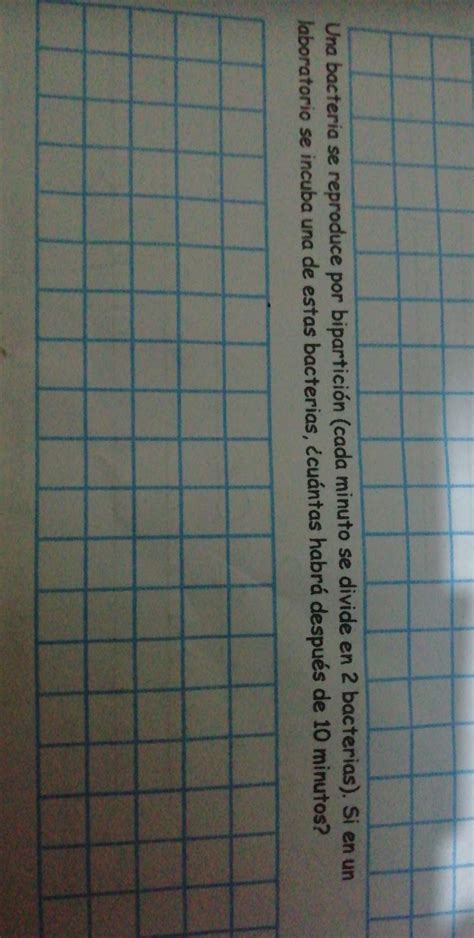 Una bacteria se reproduce por bipartición (cada minuto se divide en 2 bacterias). Si en un
laboratorio se incuba una de estas bacterias, ¿cuántas habrá después de 10 minutos?